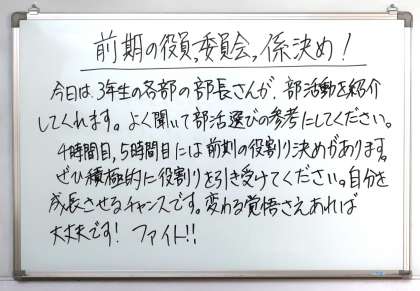 前期の役員,委員会,係決め!
今日は、3年生の各部の部長さんが、部活動を紹介
してくれます。よく聞いて部活選びの参考にしてください。
4時間目,5時間目には前期の役割り決めがあります。
ぜひ積極的に役割りを引き受けてください。自分を
成長させるチャンスです。変わる覚悟さえあれば
大丈夫です! ファイト!!